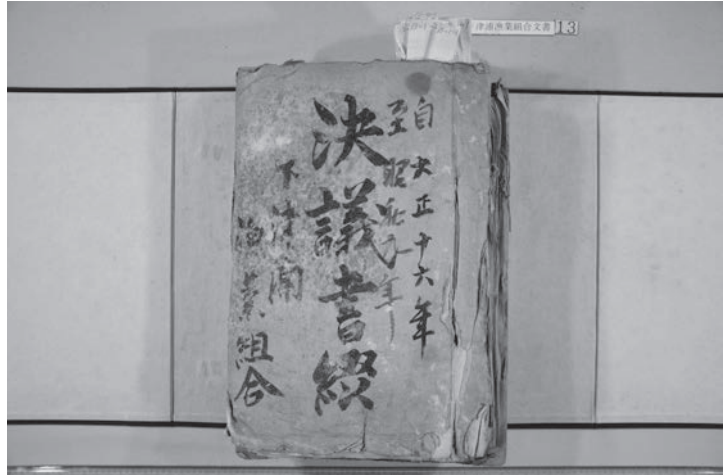 津浦漁業組合文書 13
自大正十六年
至昭和年
決議書綴
下津浦
漁業組合